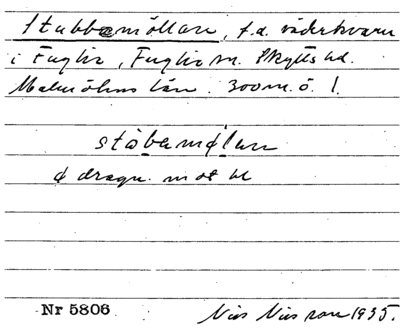 Stubbamöllan, f.d. väderkvarn
i Fuglie, Fuglie sn. Skytts hd.
Malmöhus län. 300 m. ö. l.
stɔbamølan
ø dragn. mot œ
Nr 5806 Nils Nilsson 1935.